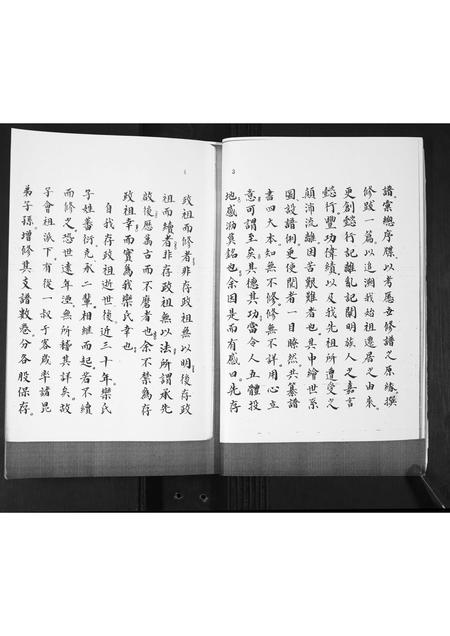 3
譜彙總序牒以考歷女修譜之原緣撰
修跋一篇以追溯我始祖遷居之由來
更創懿行記離亂記闡明族人之嘉言
懿行豐功偉績以及我先祖所遭受之
顛沛流離困苦艱難者也其中繪世系
圖設譜例更使閱者一目瞭然共纂譜
書四大本知無不修修無不詳用心立
意可謂至矣其德其功當令人五體投
地感泐莫銘也余因是而有感曰先存
4
政祖而修者非存政祖無以明後存政
祖而續者非存政祖無以法所謂承先
啟後歷萬古而不磨者也余不禁為存
政祖幸而實為我欒氏幸也
自我存政祖逝世後近三十年欒氏
子姓蕃衍充承二輩相繼而起若不續
而修之恐世遠年湮無所稽其詳矣故
子會祖派下有從一叔于客歲率諸昆
弟子孫增修其支譜數卷分各股保存